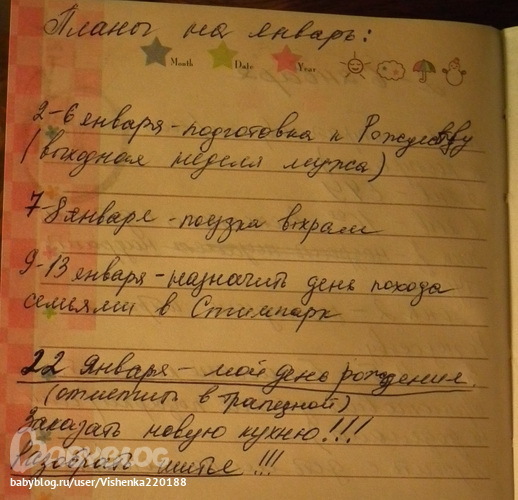 Планы на январь:
Month Date Year
2-6 января - подготовка к Рождеству
(выходная неделя мужа)
7-8 января - поездка в храм
9-13 января - назначить день похода
семьями в Стимпарк
22 Января - мой день рождения.
(отметить в трапезной)
Заказать новую кухню!!!
Разобрать шитье!!!
babyblog.ru/user/Vishenka220188